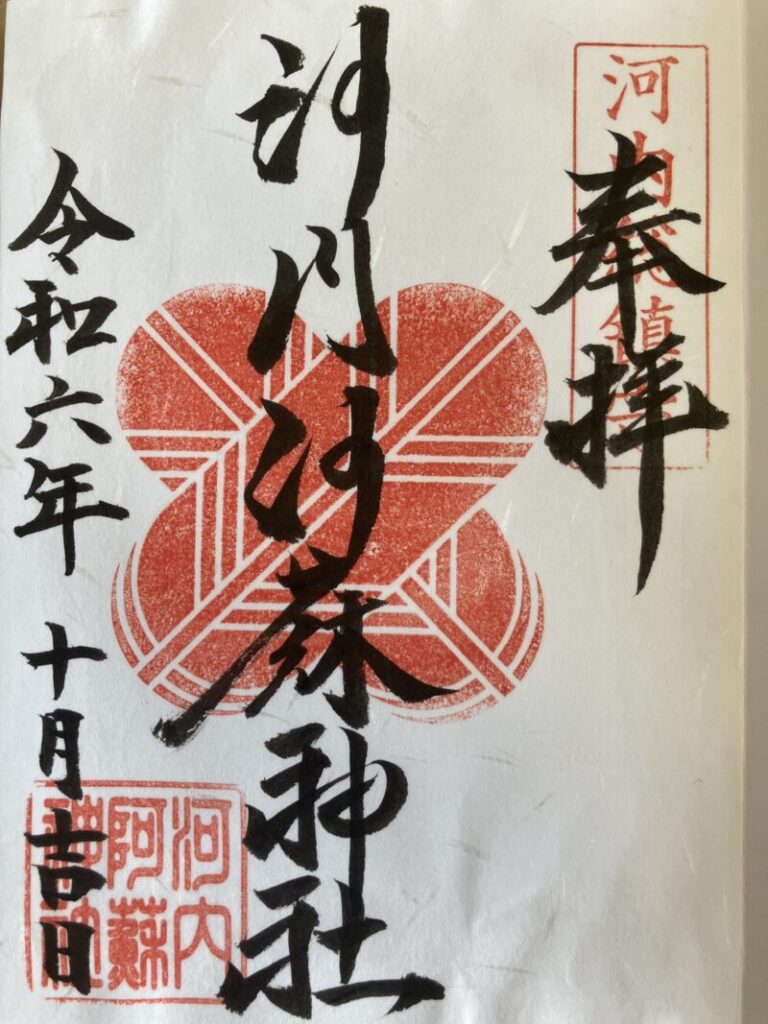 河内総鎮守
奉拝
河内阿蘇神社
令和六年 十月吉日
河内
阿蘇
神社